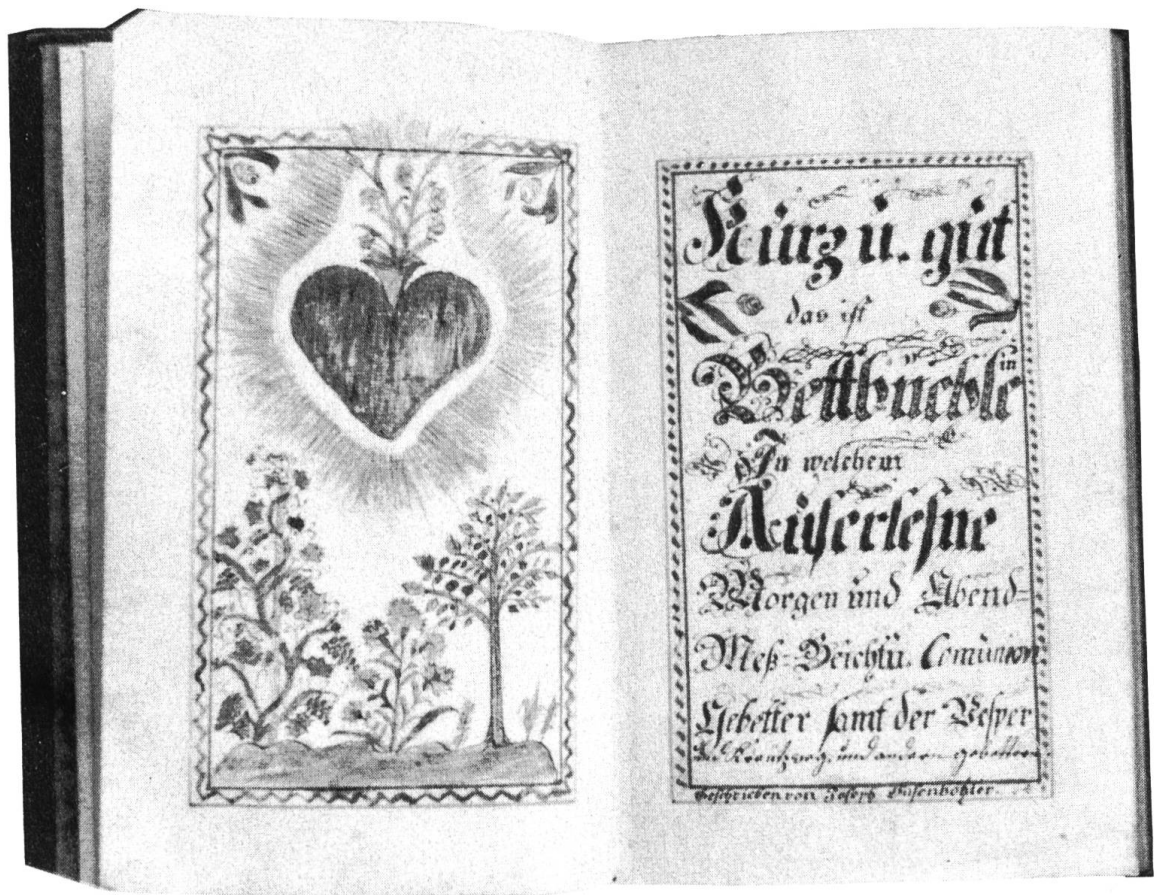 Kurz ŭ. gŭt
das ist
Bettbuchle
in
In welchem
Aŭserlesne
Morgen ŭnd Abend=
Meß=Beicht ŭ. Comŭnion
Gebetter samt der Vesper
Kreutzweg, und andern gebettern.
Geschrieben von Joseph